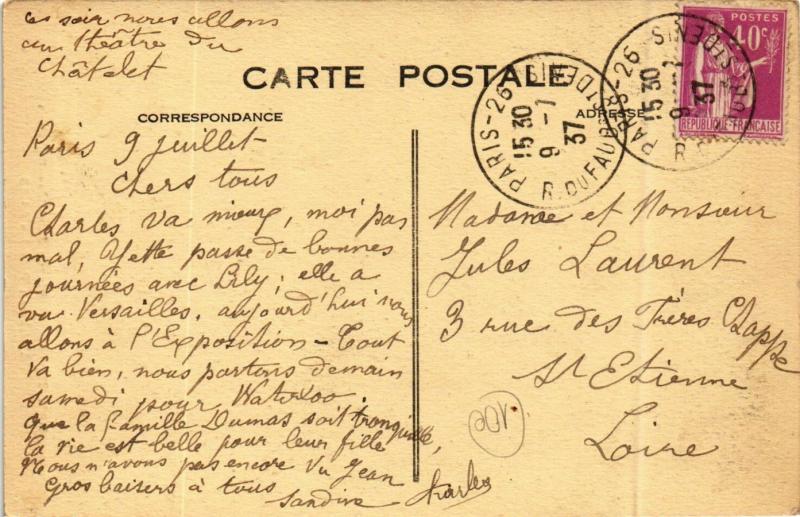 ce soir nous allons
au théâtre du
Châtelet
CARTE POSTALE
CORRESPONDANCE
ADRESSE
PARIS-26
15 30
9 -7
37
R. DU FAUB. ST DENIS
PARIS-26
15 30
9 -7
37
POSTES
40c
REPUBLIQUE FRANÇAISE
Paris 9 juillet
Chers tous
Charles va mieux, moi pas
mal, Yette passe de bonnes
journées avec Lily; elle a
vu Versailles. aujourd'hui nous
allons à l'Exposition - Tout
va bien, nous partons demain
samedi pour Waterloo.
Que la famille Dumas soit tranquille,
la vie est belle pour leur fille
Nous n'avons pas encore vu Jean
Gros baisers à tous
Sandine Charles
Madame et Monsieur
Jules Laurent
3 rue des Frères Chappe
St Etienne
Loire
10e